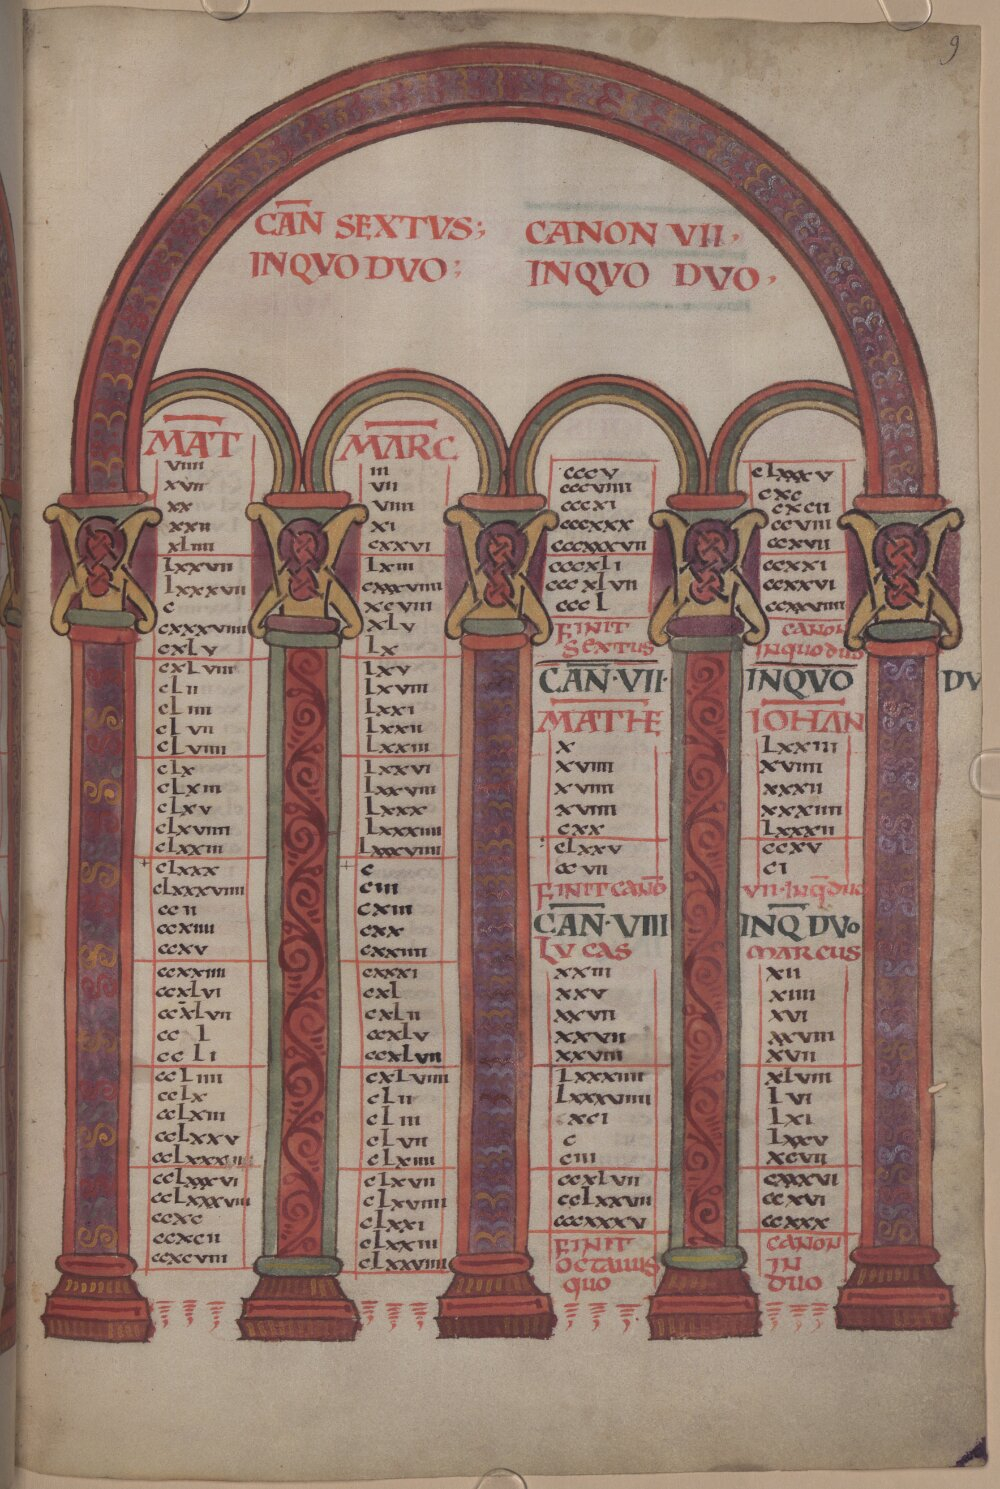 9
CAN SEXTVS;
INQVO DVO;
CANON VII,
INQVO DVO,
MAT
viiii
xvii
xx
xxii
xliiii
lxxvii
lxxxvii
c
cxxxviiii
cxlv
cxlviii
clii
cliiii
clvii
clviiii
clx
clxiii
clxv
clxviiii
clxxiii
clxxx
clxxxviiii
ccii
ccxiiii
ccxv
ccxxiiii
ccxlvi
ccxlvii
ccl
ccli
ccliiii
cclx
cclxiii
cclxxv
cclxxxvi
cclxxxviii
ccxc
ccxcii
ccxcviii
MARC
iii
vii
viiii
xi
cxxvi
lxiii
cxxxviiii
xcviii
xlv
lx
lxv
lxviii
lxxi
lxxii
lxxiii
lxxvi
lxxviii
lxxx
lxxxiiii
lxxxviiii
c
ciii
cxiii
cxx
cxxiiii
cxxxi
cxl
cxlii
ccxlv
ccxlvii
cxlviiii
clii
cliii
clvii
clxiiii
clxvii
clxviiii
clxxi
clxxiii
clxxviii
cccv
cccviiii
cccxi
cccxxx
cccxxxvii
cccxli
cccxlvii
cccl
FINIT
SEXTUS
CAN·VII·
MATHE
x
xviiii
xviiii
xviiii
cxx
clxxv
ccvii
FINIT CANO
CAN·VIII
LVCAS
xxiii
xxv
xxvii
xxvii
xxviii
lxxxiiii
lxxxviiii
xci
c
ciii
ccxlvii
cclxxvii
cccxxxv
FINIT
OCTAUUS
QUO
clxxxv
cxc
cxcii
ccviii
ccxvii
ccxxi
ccxxvi
ccxxviiii
CANON
INQUODUO
INQVO DV
IOHAN
lxxxiii
xviiii
xxxii
xxxiiii
lxxxii
ccxv
ci
VII·INQ DUO
INQ DVO
MARCUS
xii
xiiii
xvi
xxviii
xvii
xlviii
lvi
lxi
lxxv
xcvii
cxxxvi
ccxvi
ccxxx
CANON
IN
DUO